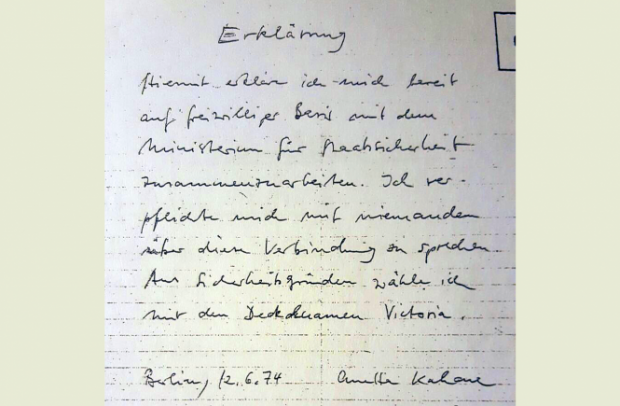 Erklärung
Hiermit erkläre ich mich bereit
auf freiwilliger Basis mit dem
Ministerium für Staatssicherheit
zusammenzuarbeiten. Ich ver-
pflichte mich mit niemanden
über diese Verbindung zu sprechen.
Aus Sicherheitsgründen wähle ich
mir den Decknamen Victoria.
Berlin, 12.6.74 Annetta Kahane